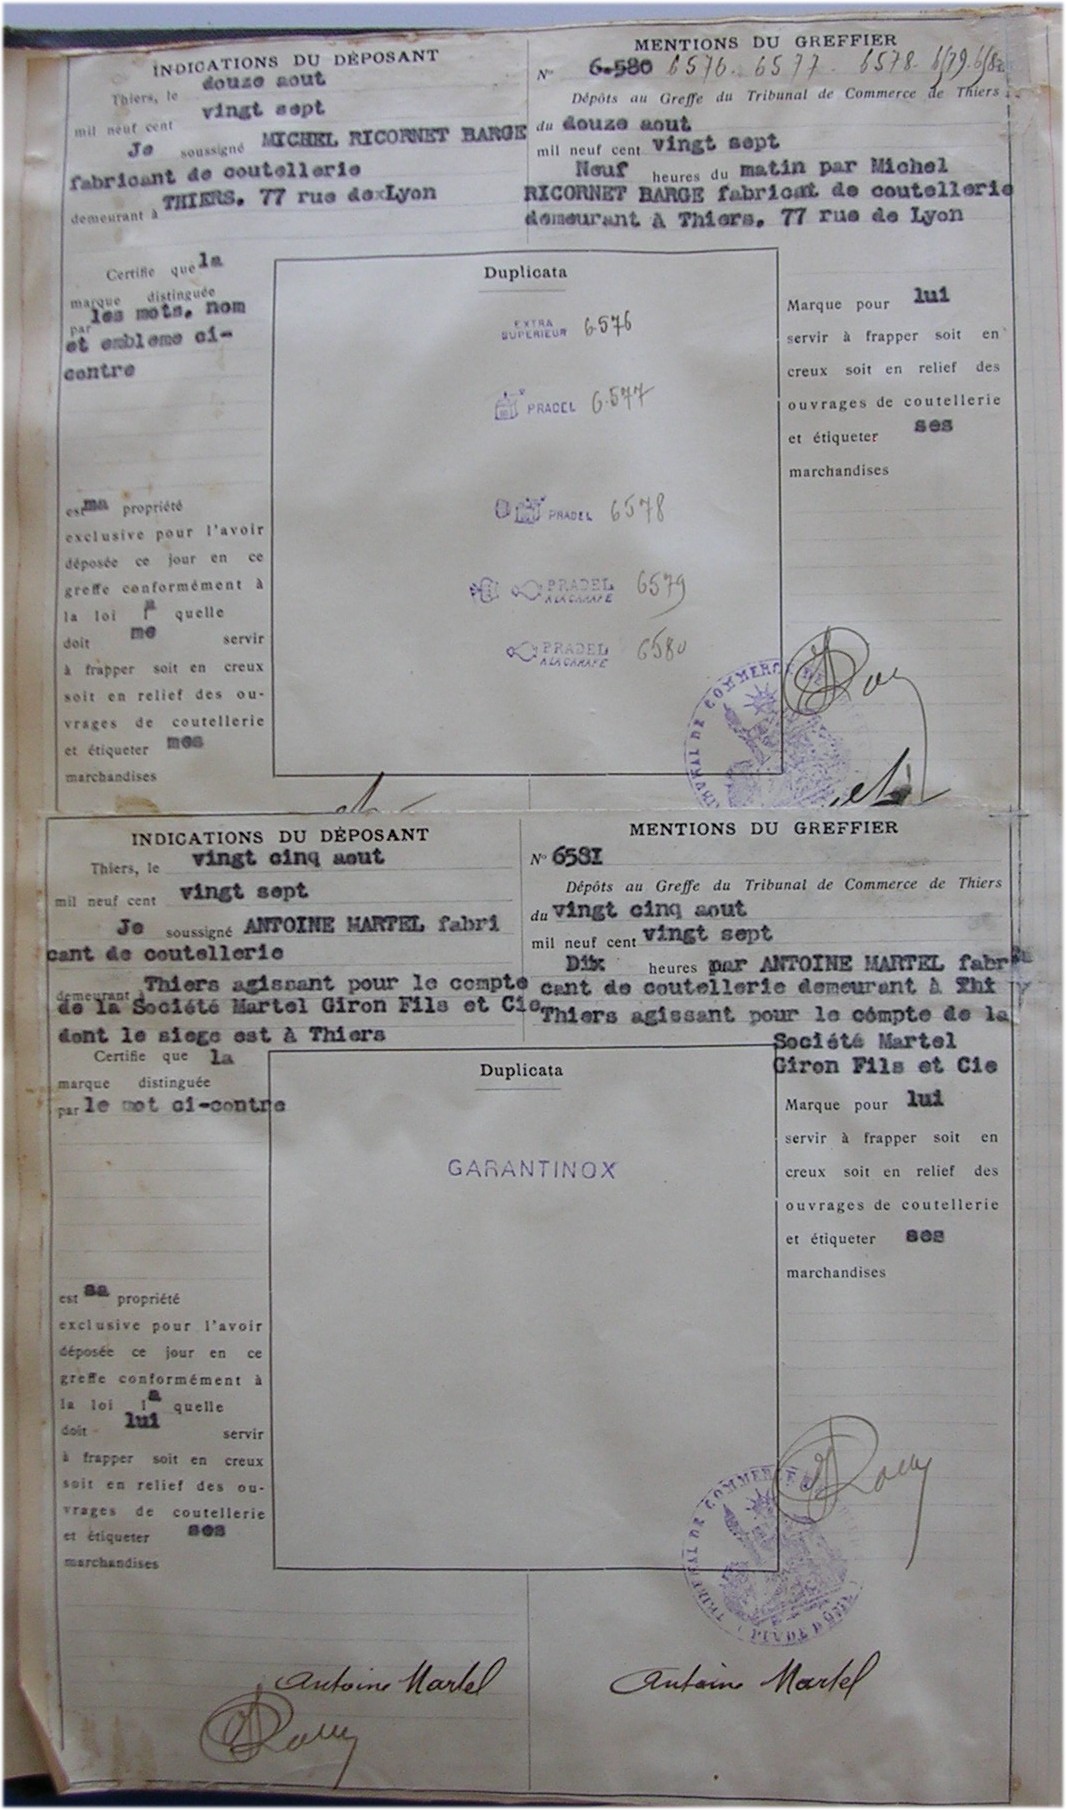 INDICATIONS DU DÉPOSANT
Thiers, le douze aout
mil neuf cent vingt sept
Je soussigné MICHEL RICORNET BARGE
fabricant de coutellerie
demeurant à THIERS. 77 rue dexLyon
Certifie que la
marque distinguée
par les mots. nom
et embleme ci-
contre
est ma propriété
exclusive pour l'avoir
déposée ce jour en ce
greffe conformément à
la loi la quelle
doit me servir
à frapper soit en creux
soit en relief des ou-
vrages de coutellerie
et étiqueter mes
marchandises
MENTIONS DU GREFFIER
N° 6.580 6576. 6577. 6578. 6579. 6580
Dépôts au Greffe du Tribunal de Commerce de Thiers
du douze aout
mil neuf cent vingt sept
Neuf heures du matin par Michel
RICORNET BARGE fabricant de coutellerie
demeurant à Thiers. 77 rue de Lyon
Duplicata
EXTRA
SUPERIEUR 6.576
PRADEL 6.577
PRADEL 6578
PRADEL
A LA CARAFE 6579
PRADEL
A LA CARAFE 6580
Marque pour lui
servir à frapper soit en
creux soit en relief des
ouvrages de coutellerie
et étiqueter ses
marchandises
TRIBUNAL DE COMMERCE DE
INDICATIONS DU DÉPOSANT
Thiers, le vingt cinq aout
mil neuf cent vingt sept
Je soussigné ANTOINE MARTEL fabri
cant de coutellerie
demeurant à Thiers agissant pour le compte
de la Société Martel Giron Fils et Cie
dont le siege est à Thiers
Certifie que la
marque distinguée
par le mot ci-contre
est sa propriété
exclusive pour l'avoir
déposée ce jour en ce
greffe conformément à
la loi la quelle
doit lui servir
à frapper soit en creux
soit en relief des ou-
vrages de coutellerie
et étiqueter ses
marchandises
MENTIONS DU GREFFIER
N° 6581
Dépôts au Greffe du Tribunal de Commerce de Thiers
du vingt cinq aout
mil neuf cent vingt sept
Dix heures par ANTOINE MARTEL fabri
cant de coutellerie demeurant à
Thiers agissant pour le compte de la
Société Martel
Giron Fils et Cie
Duplicata
GARANTINOX
Marque pour lui
servir à frapper soit en
creux soit en relief des
ouvrages de coutellerie
et étiqueter ses
marchandises
TRIBUNAL DE COMMERCE DE
(PUY DE DÔME)
Antoine Martel
Antoine Martel